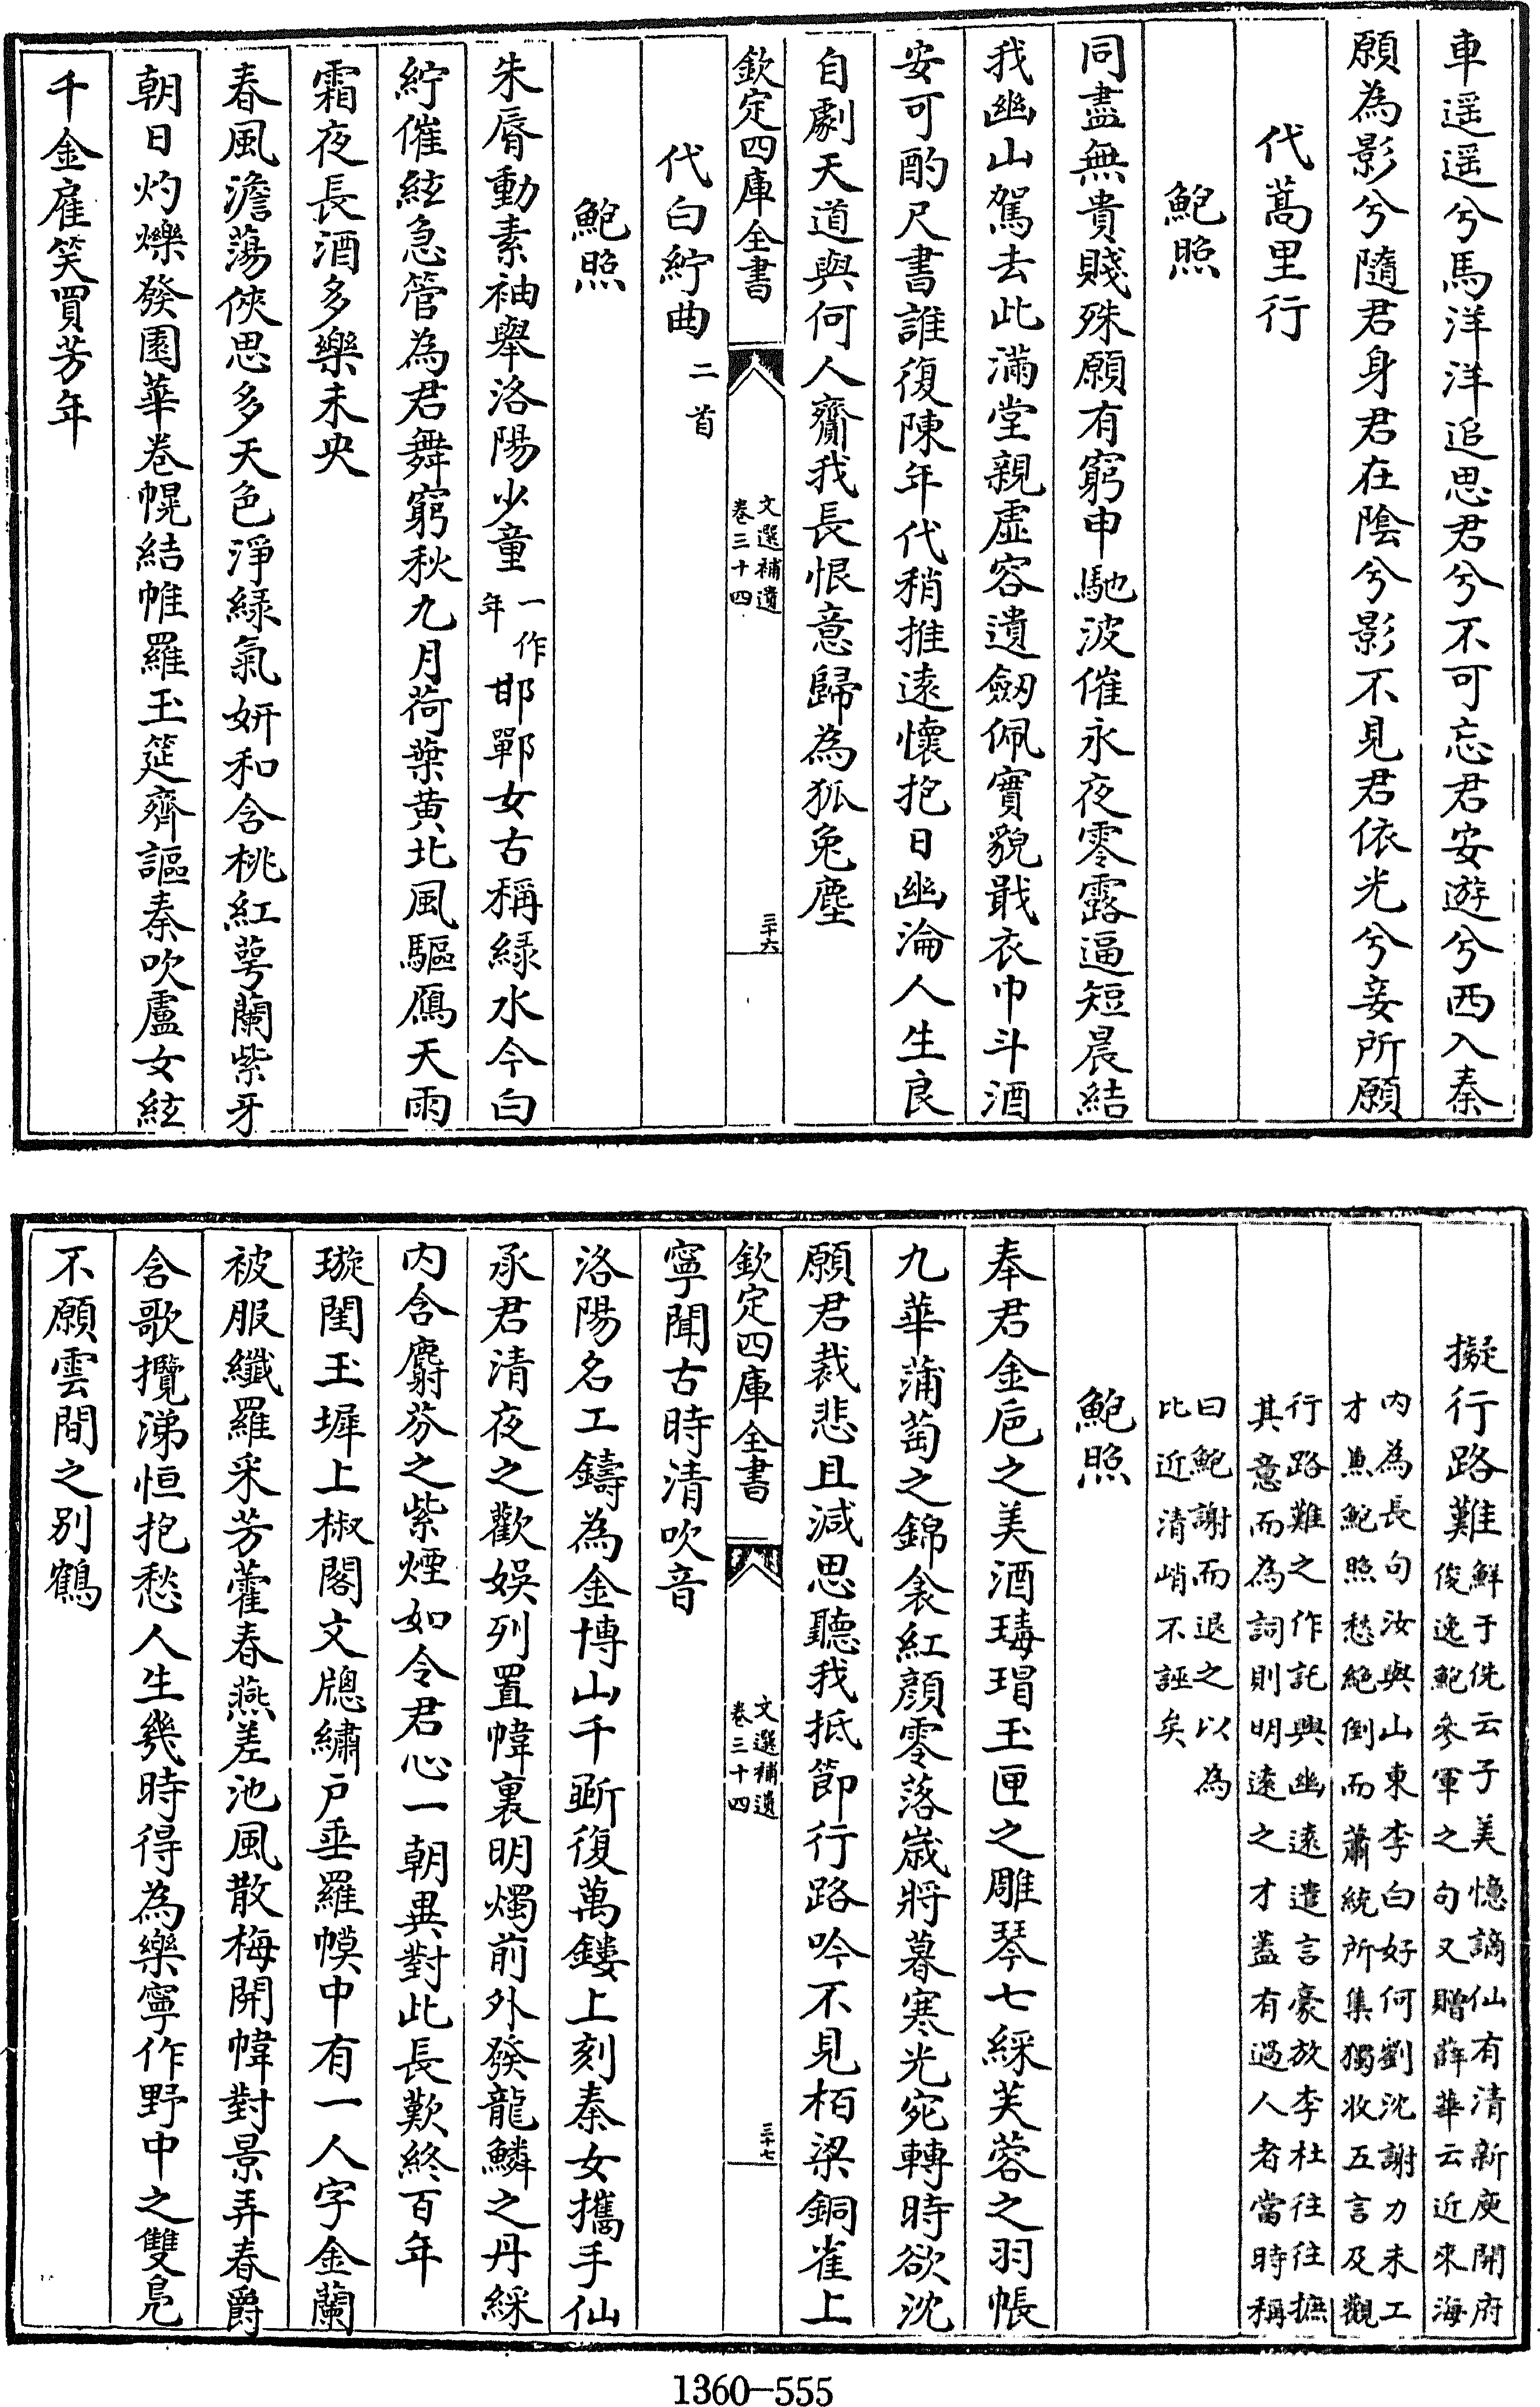 車遥遥兮馬洋洋追思君兮不可忘君安遊兮西入秦
願為影兮隨君身君在陰兮影不見君依光兮妾所願
代蒿里行
鮑照
同盡無貴賤殊願有窮申馳波催永夜零露逼短晨結
我幽山駕去此滿堂親虚容遺劒佩實貌戢衣巾斗酒
安可酌尺書誰復陳年代稍推逺懷抱日幽淪人生良
自劇天道與何人齎我長恨意歸為狐兔塵
欽定四庫全書
文選補遺
卷三十四
三十六
代白紵曲二首
鮑照
朱脣動素袖舉洛陽少童一作年邯鄲女古稱緑水今白
紵催絃急管為君舞窮秋九月荷葉黄北風驅鴈天雨
霜夜長酒多樂未央
春風澹蕩俠思多天色淨緑氣妍和含桃紅萼蘭紫牙
朝日灼爍發園華卷幌結帷羅玉筵齊謳秦吹盧女絃
千金雇笑買芳年
擬行路難
鮮于侁云子美憶謫仙有清新庾開府
俊逸鮑參軍之句又贈薛華云近來海
内為長句汝與山東李白好何劉沈謝力未工
才兼鮑照愁絶倒而蕭統所集獨收五言及觀
行路難之作託興幽遠遣言豪放李杜往往摭
其意而為詞則明逺之才蓋有過人者當時稱
曰鮑謝而退之以為
比近清峭不誣矣
鮑照
奉君金巵之美酒瑇瑁玉匣之雕琴七綵芙蓉之羽帳
九華蒲萄之錦衾紅顔零落歲將暮寒光宛轉時欲沈
願君裁悲且減思聽我抵節行路吟不見栢梁銅雀上
欽定四庫全書
文選補遺
卷三十四
三十七
寧聞古時清吹音
洛陽名工鑄為金博山千斵復萬鏤上刻秦女攜手仙
承君清夜之歡娱列置幃裏明燭前外發龍鱗之丹綵
内含麝芬之紫煙如今君心一朝異對此長歎終百年
璇閨玉墀上椒閣文牕繡户垂羅幙中有一人字金蘭
被服纖羅采芳藿春燕差池風散梅開幃對景弄春爵
含歌攬涕恒抱愁人生幾時得為樂寧作野中之雙鳬
不願雲間之别鶴
1360-555